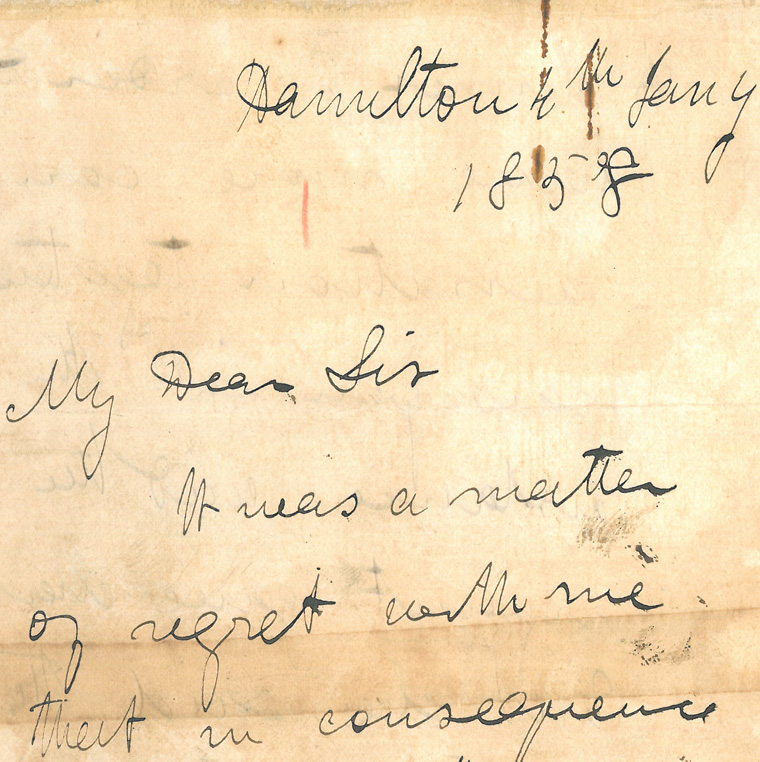 Hamilton 4th Jany
1858
My Dear Sir
It was a matter
of regret with me
that in consequence